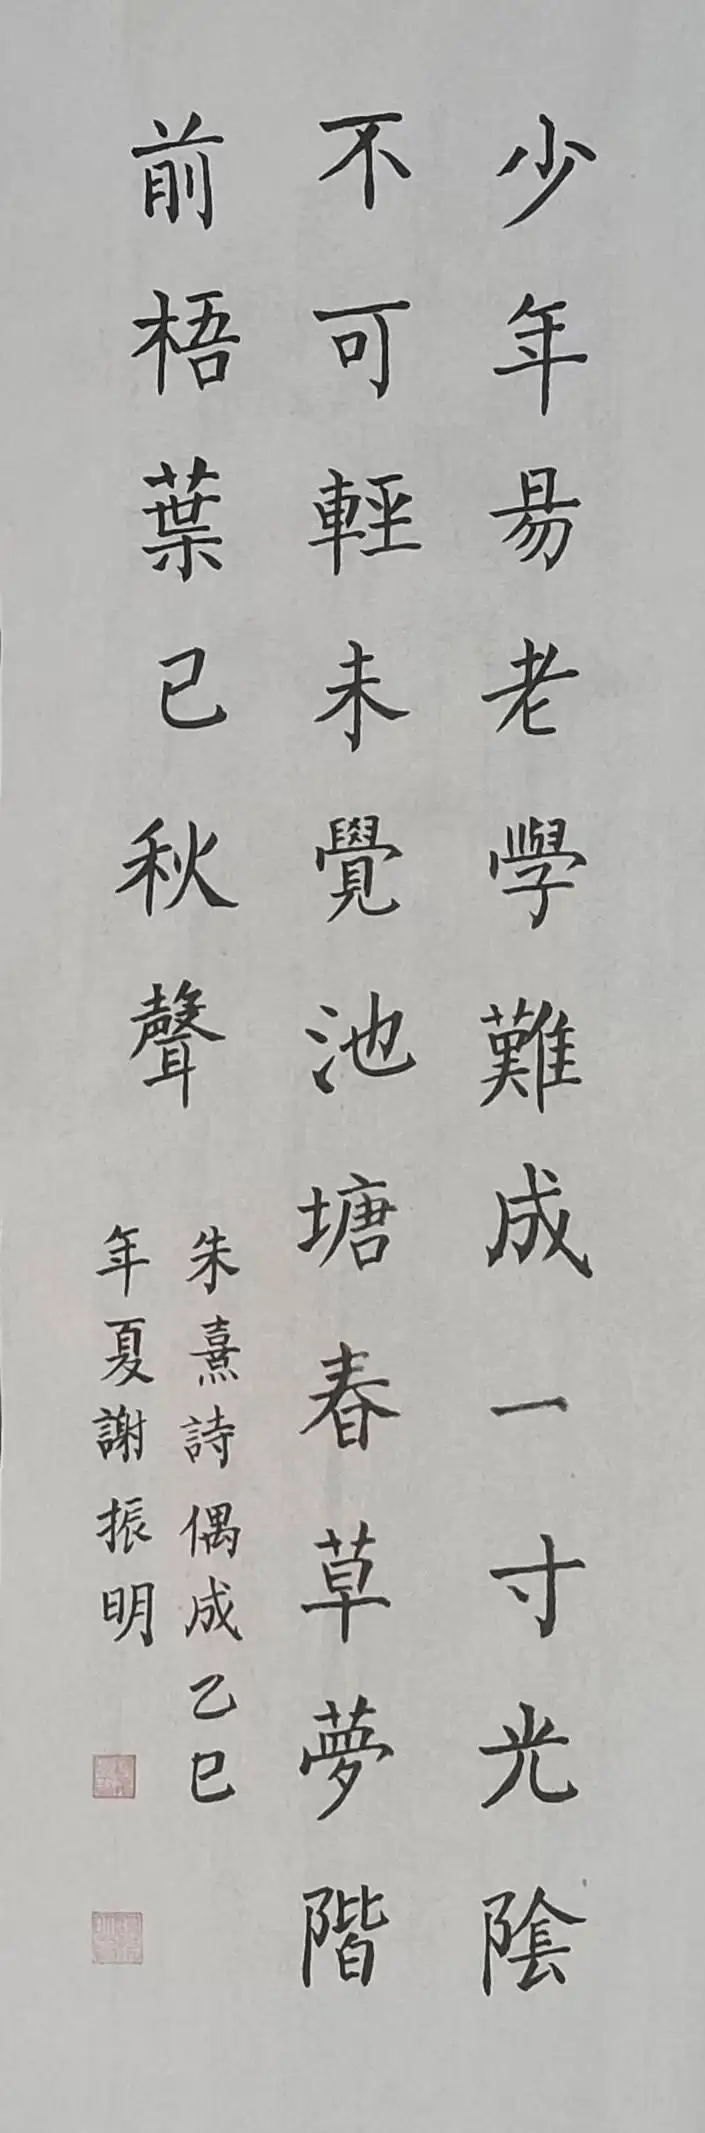 少年易老學難成一寸光陰
不可輕未覺池塘春草夢階
前梧葉已秋聲
朱熹詩偶成乙巳
年夏謝振明